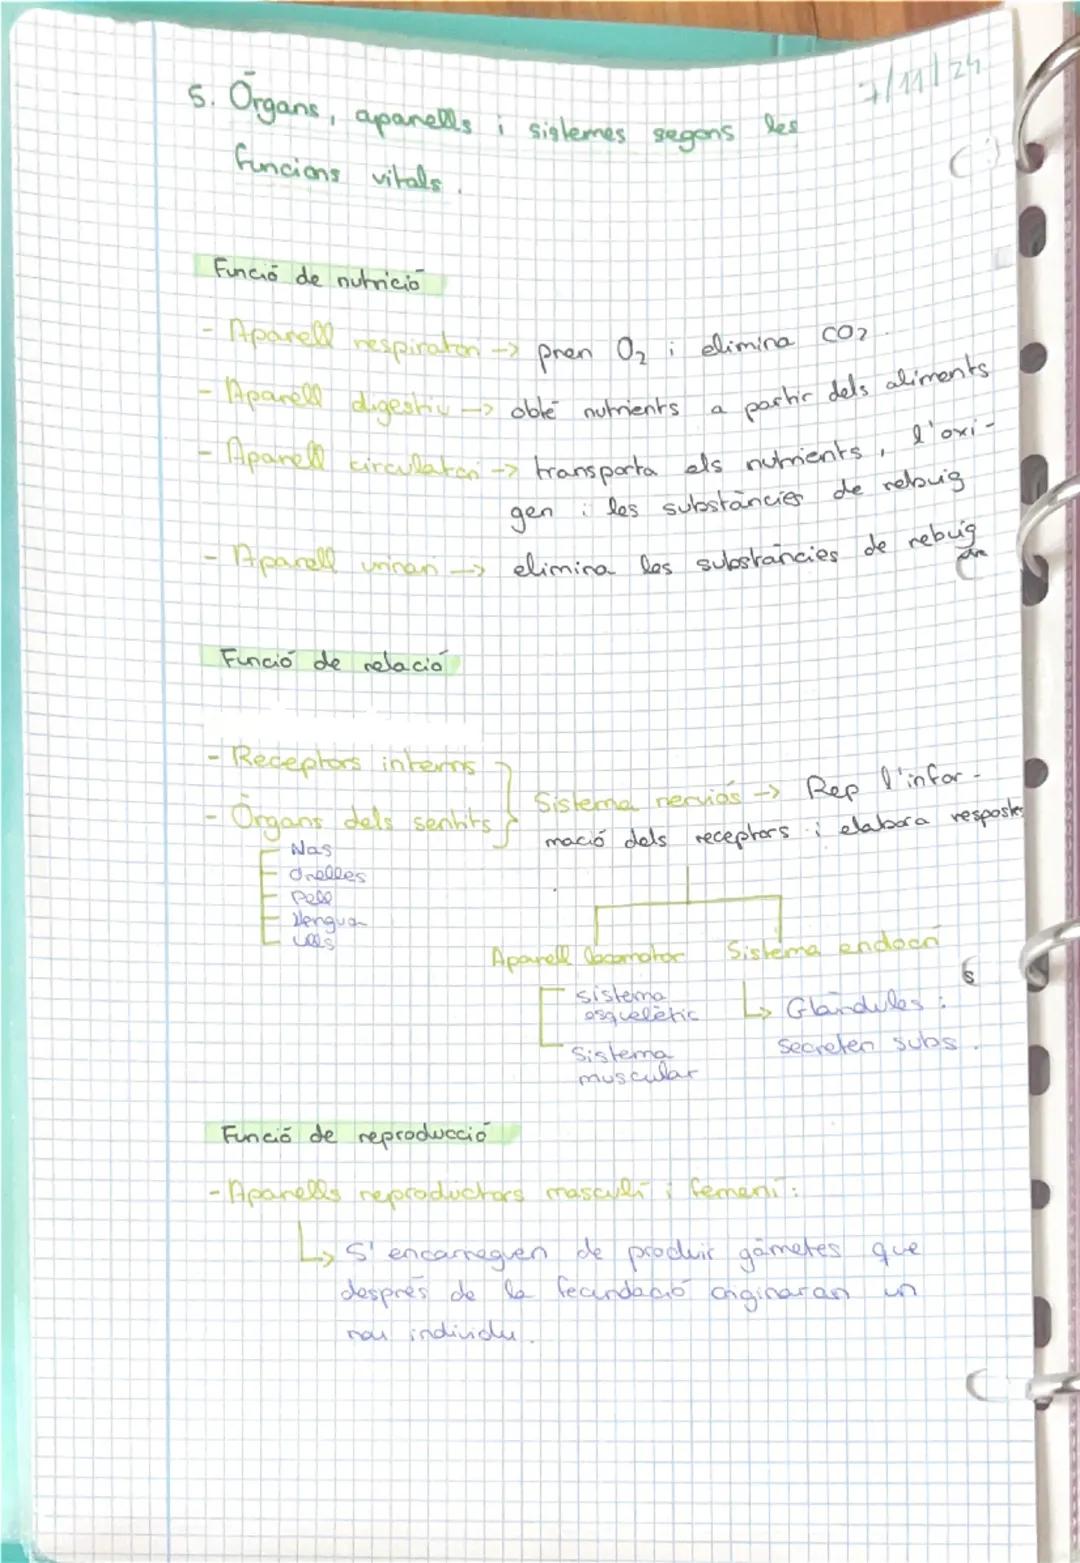 7/11/24
5. Òrgans, aparells i sistemes segons les
funcions vitals.
Funció de nutrició
- Aparell respiratori -> pren O2 i elimina CO2.
- Aparell digestiu -> obté nutrients a partir dels aliments
- Aparell circulatori -> transporta els nutrients, l'oxi-
gen i les substàncies de rebuig
- Aparell urinari -> elimina les substàncies de rebuig
Funció de relació
- Receptors interns
- Òrgans dels sentits
Nas
Orelles
Pell
Llengua
Ulls
Sistema nerviós -> Rep l'infor-
mació dels receptors i elabora respostes
Aparell locomotor
sistema
esquelètic
Sistema
muscular
Sistema endocrí
Glàndules:
secreten subs.
Funció de reproducció
- Aparells reproductors masculí i femení:
S'encarreguen de produir gàmetes que
després de la fecundació originaran un
nou individu.